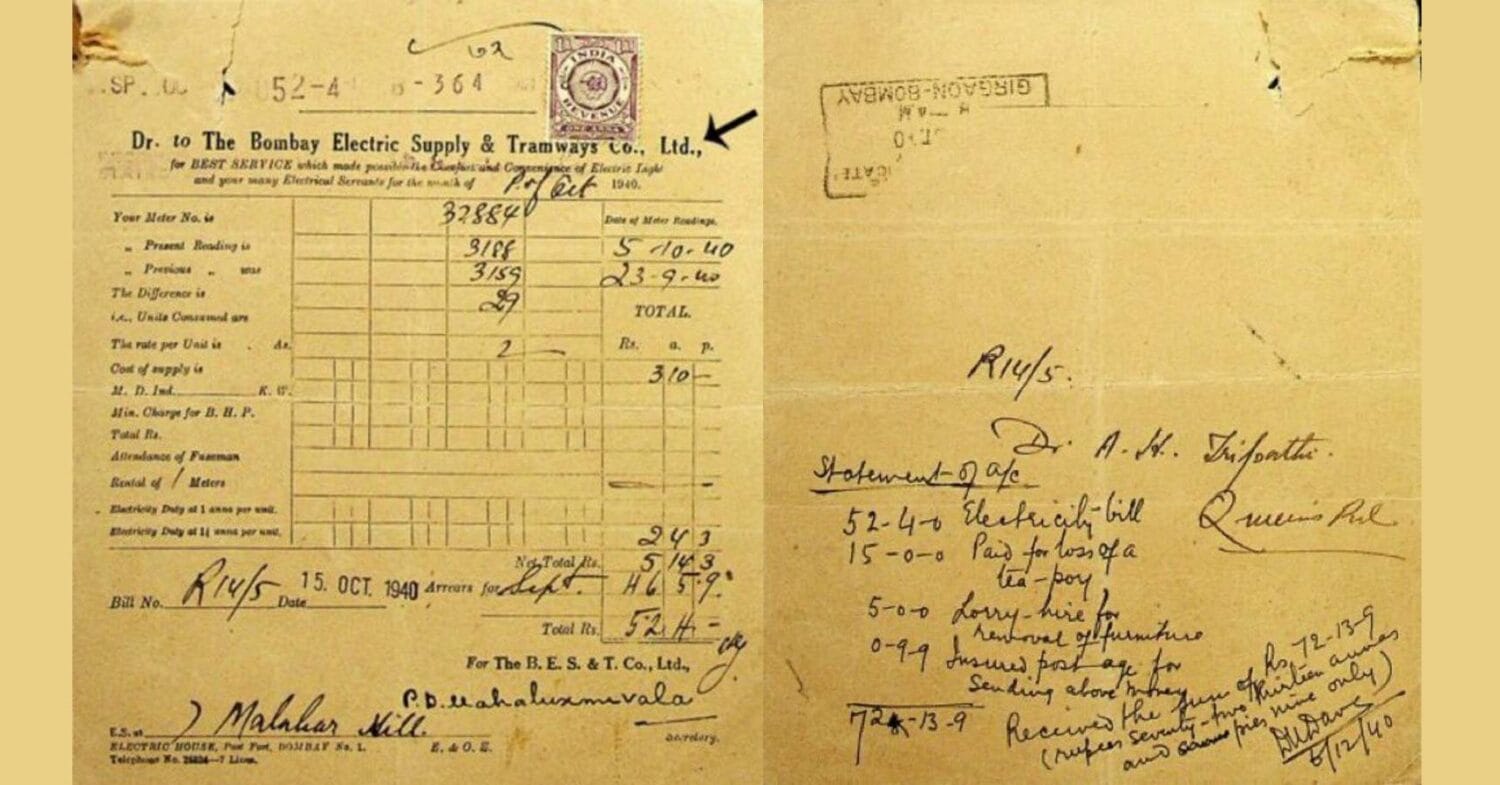 52-4 B-364
INDIA
REVENUE
ONE ANNA
Dr. to The Bombay Electric Supply & Tramways Co., Ltd.,
for BEST SERVICE which made possible the Comfort and Convenience of Electric Light
and your many Electrical Servants for the month of P. of Oct 1940.
Your Meter No. is 32884 Date of Meter Readings.
„ Present Reading is 3188 5-10-40
„ Previous „ was 3159 23-9-40
The Difference is 29
i.e., Units Consumed are TOTAL.
The rate per Unit is . As. 2 Rs. a. p.
Cost of supply is 3 10 -
M. D. Ind. K. W.
Min. Charge for B. H. P.
Total Rs.
Attendance of Fuseman
Rental of 1 Meters
Electricity Duty at 1 anna per unit.
Electricity Duty at 1¼ anna per unit. 2 4 3
Net Total Rs. 5 14 3
Bill No. R14/5 Date 15 OCT. 1940 Arrears for Sept. 46 5 9
Total Rs. 52 4 -
For The B. E. S. & T. Co., Ltd.,
P.D. Mahaluxmivala
Secretary.
E.S. at Malabar Hill.
ELECTRIC HOUSE, Post Fort, BOMBAY No. 1. E. & O. E.
Telephone No. 7 Lines.
GIRGAON-BOMBAY
R14/5.
Dr. A. H. Tripathi.
Queens Rd
Statement of a/c
52-4-0 Electricity bill
15-0-0 Paid for loss of a
tea-poy
5-0-0 Lorry-hire for
removal of furniture
0-9-9 Insured postage for
sending above money
72-13-9
Received the sum of Rs. 72-13-9
(rupees seventy-two thirteen annas
and pies nine only)
5/12/40